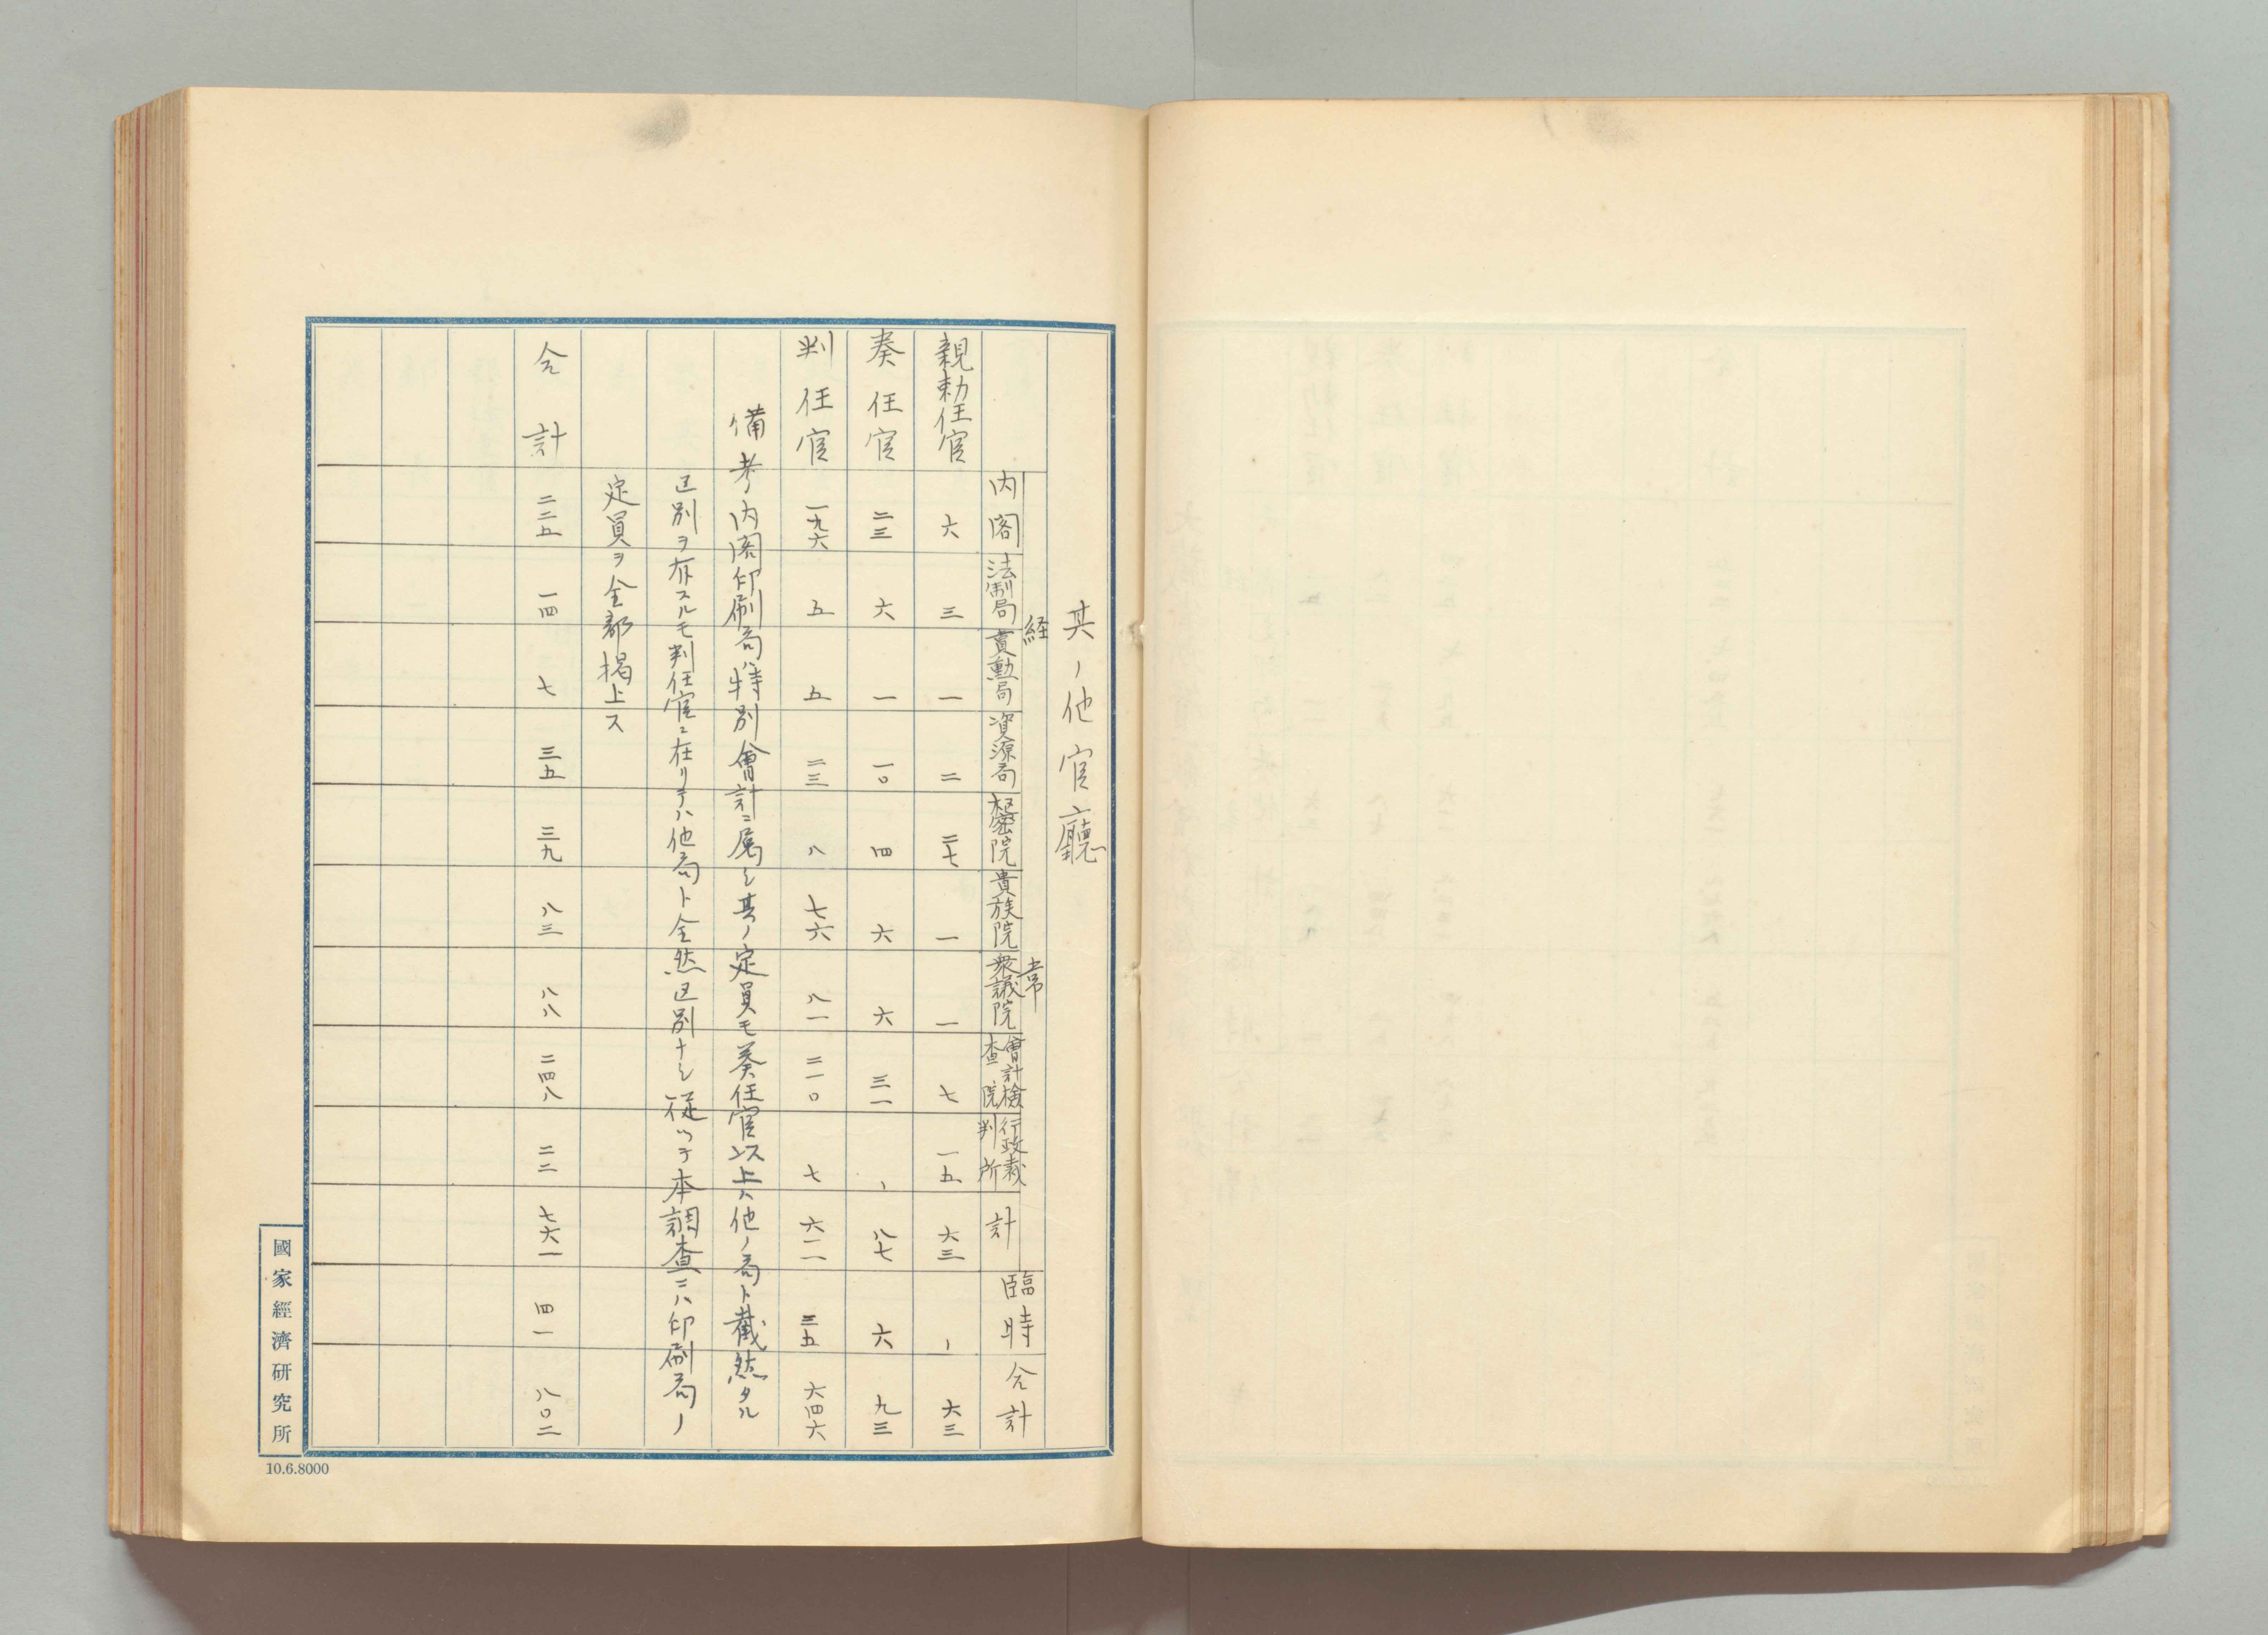 其ノ他官廳
経常
内閣 法制局 賞勲局 資源局 枢密院 貴族院 衆議院 會計検査院 行政裁判所 計 臨時 合計
親勅任官 六 三 一 二 二七 一 一 七 一五 六三 、 六三
奏任官 二三 六 一 一〇 四 六 六 三一 、 八七 六 九三
判任官 一九六 五 五 二三 八 七六 八一 二一〇 七 六一一 三五 六四六
備考 内閣印刷局ハ特別會計ニ属シ其ノ定員モ奏任官以上ハ他ノ局ト截然タル
区別ヲ存スルモ判任官ニ在リテハ他局ト全然区別ナシ従ツテ本調査ニハ印刷局ノ
定員ヲ全部掲上ス
合計 二二五 一四 七 三五 三九 八三 八八 二四八 二二 七六一 四一 八〇二
國家經濟研究所
10.6.8000